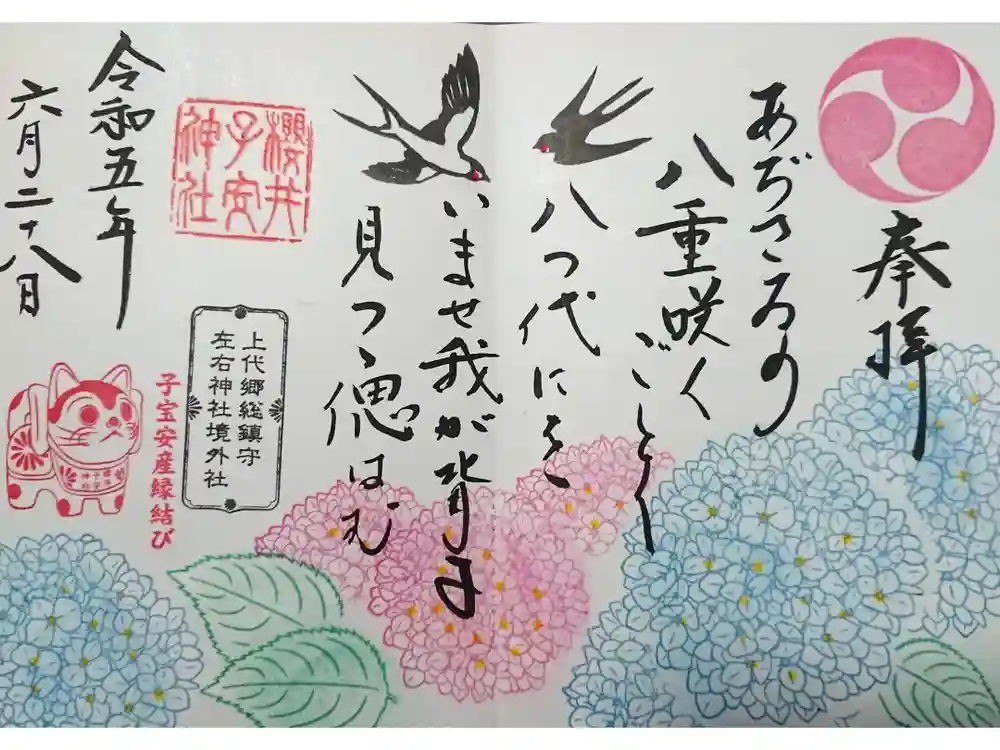 奉拝
あぢさゐの
八重咲く
ごとく
八つ代にを
いませ我が背子
見つゝ偲はむ
櫻井
子安
神社
上代郷総鎮守
左右神社境外社
子宝安産縁結び
令和五年
六月二十八日